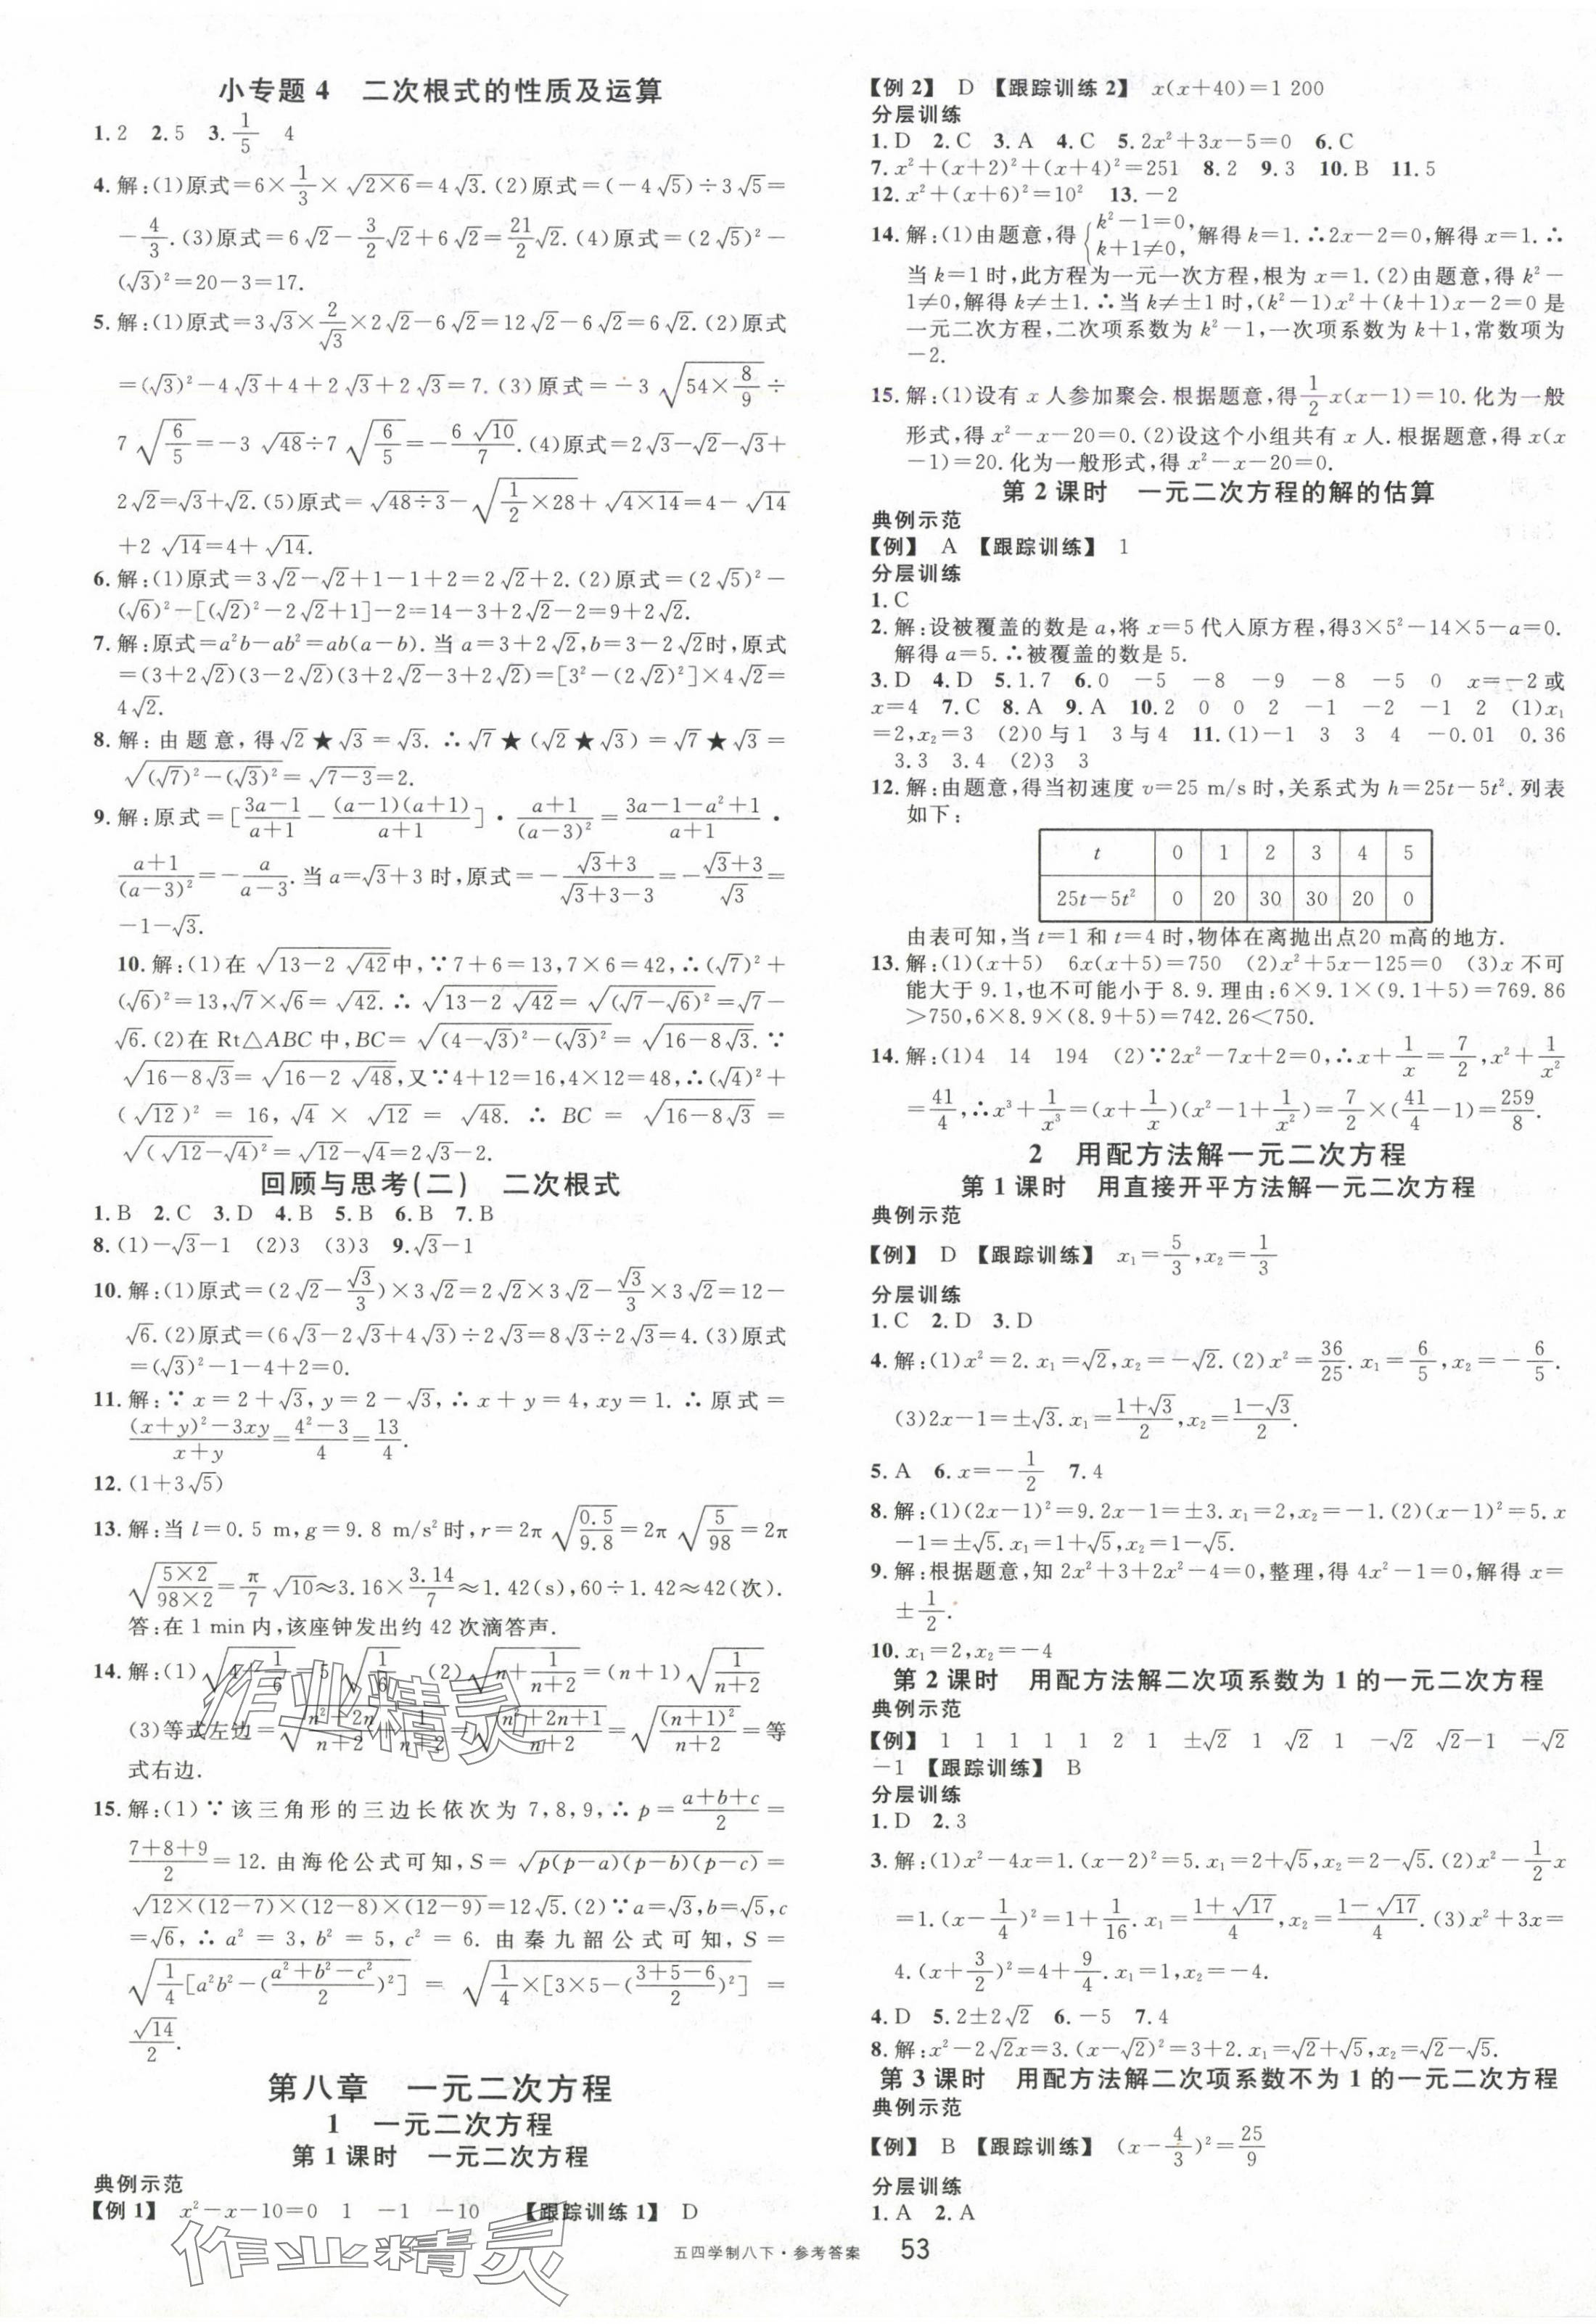 小专题4　二次根式的性质及运算
1.2　2.5　3.1/5　4
4.解:(1)原式=6×1/3×√(2×6)=4√3.(2)原式=(-4√5)÷3√5=
-4/3.(3)原式=6√2-3/2√2+6√2=21/2√2.(4)原式=(2√5)²-
(√3)²=20-3=17.
5.解:(1)原式=3√3×2/√3×2√2-6√2=12√2-6√2=6√2.(2)原式
=(√3)²-4√3+4+2√3+2√3=7.(3)原式=-3√(54×8/9)÷
7√(6/5)=-3√48÷7√(6/5)=-6√10/7.(4)原式=2√3-√2-√3+
2√2=√3+√2.(5)原式=√(48÷3)-√(1/2×28)+√(4×14)=4-√14
+2√14=4+√14.
6.解:(1)原式=3√2-√2+1-1+2=2√2+2.(2)原式=(2√5)²-
(√6)²-[(√2)²-2√2+1]-2=14-3+2√2-2=9+2√2.
7.解:原式=a²b-ab²=ab(a-b).当a=3+2√2,b=3-2√2时,原式
=(3+2√2)(3-2√2)(3+2√2-3+2√2)=[3²-(2√2)²]×4√2=
4√2.
8.解:由题意,得√2★√3=√3.∴√7★(√2★√3)=√7★√3=
√((√7)²-(√3)²)=√(7-3)=2.
9.解:原式=[(3a-1)/(a+1)-(a-1)(a+1)/(a+1)]·(a+1)/(a-3)²=(3a-1-a²+1)/(a+1)·
(a+1)/(a-3)²=-a/(a-3).当a=√3+3时,原式=-(√3+3)/(√3+3-3)=-(√3+3)/√3=
-1-√3.
10.解:(1)在√(13-2√42)中,∵7+6=13,7×6=42,∴(√7)²+
(√6)²=13,√7×√6=√42.∴√(13-2√42)=√((√7-√6)²)=√7-
√6.(2)在Rt△ABC中,BC=√((4-√3)²-(√3)²)=√(16-8√3).∵
√(16-8√3)=√(16-2√48),又∵4+12=16,4×12=48,∴(√4)²+
(√12)²=16,√4×√12=√48.∴BC=√(16-8√3)=
√((√12-√4)²)=√12-√4=2√3-2.
回顾与思考(二)　二次根式
1.B　2.C　3.D　4.B　5.B　6.B　7.B
8.(1)-√3-1　(2)3　(3)3　9.√3-1
10.解:(1)原式=(2√2-√3/3)×3√2=2√2×3√2-√3/3×3√2=12-
√6.(2)原式=(6√3-2√3+4√3)÷2√3=8√3÷2√3=4.(3)原式
=(√3)²-1-4+2=0.
11.解:∵x=2+√3,y=2-√3,∴x+y=4,xy=1.∴原式=
((x+y)²-3xy)/(x+y)=(4²-3)/4=13/4.
12.(1+3√5)
13.解:当l=0.5 m,g=9.8 m/s²时,r=2π√(0.5/9.8)=2π√(5/98)=2π
√((5×2)/(98×2))=π/7√10≈3.16×3.14/7≈1.42(s),60÷1.42≈42(次).
答:在1 min内,该座钟发出约42次滴答声.
14.解:(1)√(4+1/6)=5√(1/6)　(2)√(n+1/(n+2))=(n+1)√(1/(n+2))
(3)等式左边=√((n²+2n)/(n+2)+1/(n+2))=√((n²+2n+1)/(n+2))=√((n+1)²/(n+2))=等
式右边.
15.解:(1)∵该三角形的三边长依次为7,8,9,∴p=(a+b+c)/2=
(7+8+9)/2=12.由海伦公式可知,S=√(p(p-a)(p-b)(p-c))=
√(12×(12-7)×(12-8)×(12-9))=12√5.(2)∵a=√3,b=√5,c
=√6,∴a²=3,b²=5,c²=6.由秦九韶公式可知,S=
√(1/4[a²b²-((a²+b²-c²)/2)²])=√(1/4×[3×5-((3+5-6)/2)²])=
√14/2.
第八章　一元二次方程
1　一元二次方程
第1课时　一元二次方程
典例示范
【例1】　x²-x-10=0　1　-1　-10　【跟踪训练1】　D
【例2】　D　【跟踪训练2】　x(x+40)=1 200
分层训练
1.D　2.C　3.A　4.C　5.2x²+3x-5=0　6.C
7.x²+(x+2)²+(x+4)²=251　8.2　9.3　10.B　11.5
12.x²+(x+6)²=10²　13.-2
14.解:(1)由题意,得{k²-1=0,k+1≠0,解得k=1.∴2x-2=0,解得x=1.∴
当k=1时,此方程为一元一次方程,根为x=1.(2)由题意,得k²-
1≠0,解得k≠±1.∴当k≠±1时,(k²-1)x²+(k+1)x-2=0是
一元二次方程,二次项系数为k²-1,一次项系数为k+1,常数项为
-2.
15.解:(1)设有x人参加聚会.根据题意,得1/2x(x-1)=10.化为一般
形式,得x²-x-20=0.(2)设这个小组共有x人.根据题意,得x(x
-1)=20.化为一般形式,得x²-x-20=0.
第2课时　一元二次方程的解的估算
典例示范
【例】　A　【跟踪训练】　1
分层训练
1.C
2.解:设被覆盖的数是a,将x=5代入原方程,得3×5²-14×5-a=0.
解得a=5.∴被覆盖的数是5.
3.D　4.D　5.1.7　6.0　-5　-8　-9　-8　-5　0　x=-2或
x=4　7.C　8.A　9.A　10.2　0　0　2　-1　-2　-1　2　(1)x₁
=2,x₂=3　(2)0与1　3与4　11.(1)-1　3　3　4　-0.01　0.36
3.3　3.4　(2)3　3
12.解:由题意,得当初速度v=25 m/s时,关系式为h=25t-5t².列表
如下:
t　0　1　2　3　4　5
25t-5t²　0　20　30　30　20　0
由表可知,当t=1和t=4时,物体在离抛出点20 m高的地方.
13.解:(1)(x+5)　6x(x+5)=750　(2)x²+5x-125=0　(3)x不可
能大于9.1,也不可能小于8.9.理由:6×9.1×(9.1+5)=769.86
>750,6×8.9×(8.9+5)=742.26<750.
14.解:(1)4　14　194　(2)∵2x²-7x+2=0,∴x+1/x=7/2,x²+1/x²
=41/4,∴x³+1/x³=(x+1/x)(x²-1+1/x²)=7/2×(41/4-1)=259/8.
2　用配方法解一元二次方程
第1课时　用直接开平方法解一元二次方程
典例示范
【例】　D　【跟踪训练】　x₁=5/3,x₂=1/3
分层训练
1.C　2.D　3.D
4.解:(1)x²=2.x₁=√2,x₂=-√2.(2)x²=36/25.x₁=6/5,x₂=-6/5.
(3)2x-1=±√3.x₁=(1+√3)/2,x₂=(1-√3)/2.
5.A　6.x=-1/2　7.4
8.解:(1)(2x-1)²=9.2x-1=±3.x₁=2,x₂=-1.(2)(x-1)²=5.x
-1=±√5.x₁=1+√5,x₂=1-√5.
9.解:根据题意,知2x²+3+2x²-4=0,整理,得4x²-1=0,解得x=
±1/2.
10.x₁=2,x₂=-4
第2课时　用配方法解二次项系数为1的一元二次方程
典例示范
【例】　1　1　1　1　1　2　1　±√2　1　√2　1　-√2　√2-1　-√2
-1　【跟踪训练】　B
分层训练
1.D　2.3
3.解:(1)x²-4x=1.(x-2)²=5.x₁=2+√5,x₂=2-√5.(2)x²-1/2x
=1.(x-1/4)²=1+1/16.x₁=(1+√17)/4,x₂=(1-√17)/4.(3)x²+3x=
4.(x+3/2)²=4+9/4.x₁=1,x₂=-4.
4.D　5.2±2√2　6.-5　7.4
8.解:x²-2√2x=3.(x-√2)²=3+2.x₁=√2+√5,x₂=√2-√5.
第3课时　用配方法解二次项系数不为1的一元二次方程
典例示范
【例】　B　【跟踪训练】　(x-4/3)²=25/9
分层训练
1.A　2.A
五四学制八下·参考答案　53
作业精灵
作业精灵